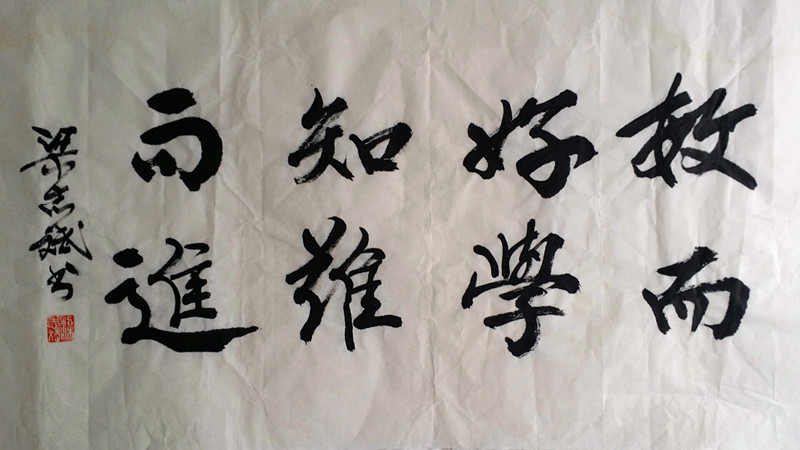 敏而
好學
知難
而進
梁志斌书